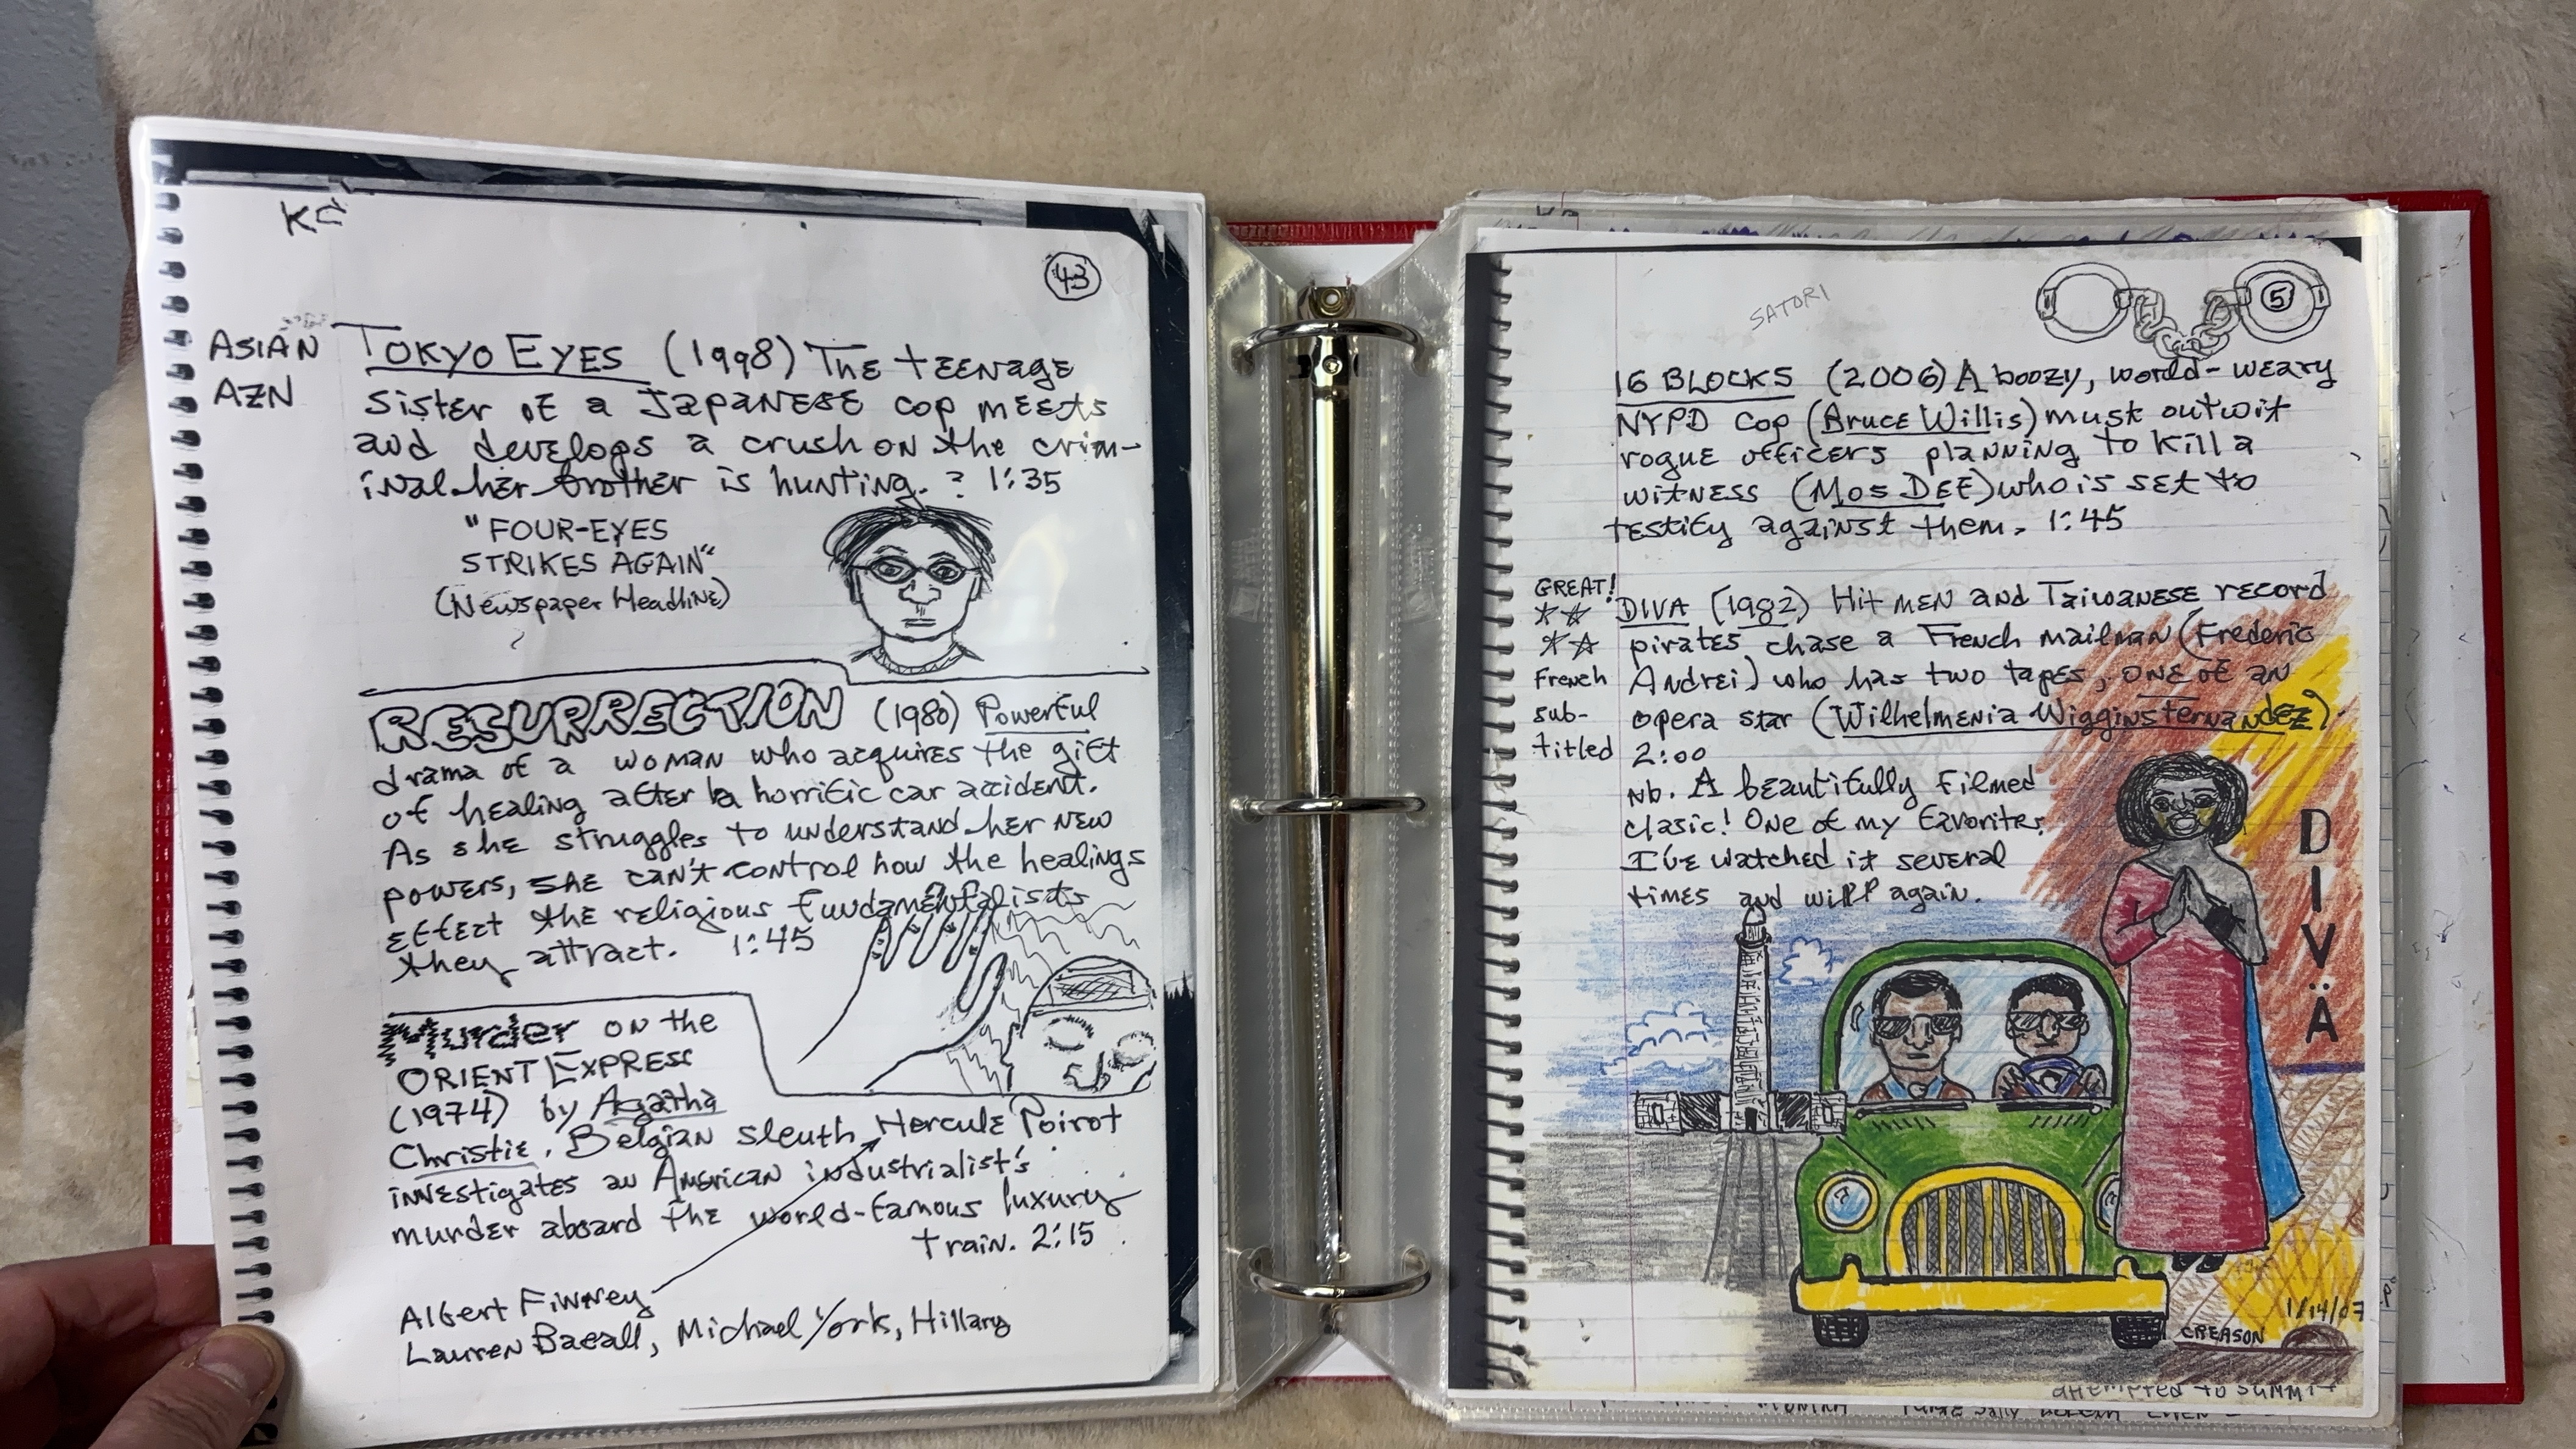 KC
43
ASIAN
AZN
TOKYO EYES (1998) The teenage
sister of a Japanese cop meets
and develops a crush on the crim-
inal her brother is hunting. ? 1:35
"FOUR-EYES
STRIKES AGAIN"
(Newspaper Headline)
RESURRECTION (1980) Powerful
drama of a woman who acquires the gift
of healing after a horrific car accident.
As she struggles to understand her new
powers, she can't control how the healings
effect the religious fundamentalists
they attract. 1:45
Murder on the
ORIENT EXPRESS
(1974) by Agatha
Christie. Belgian sleuth Hercule Poirot
investigates an American industrialist's
murder aboard the world-famous luxury
train. 2:15
Albert Finney
Lauren Bacall, Michael York, Hillary
SATORI
5
16 BLOCKS (2006) A boozy, world-weary
NYPD cop (Bruce Willis) must outwit
rogue officers planning to kill a
witness (Mos DEF) who is set to
testify against them. 1:45
GREAT!
French
sub-
titled
DIVA (1982) Hit men and Taiwanese record
pirates chase a French mailman (Frederic
Andrei) who has two tapes, one of an
opera star (Wilhelmenia Wiggins Fernandez).
2:00
Nb. A beautifully filmed
clasic! One of my favorites.
I've watched it several
times and will again.
DIVÄ
1/14/07
CREASON
attempted to summit